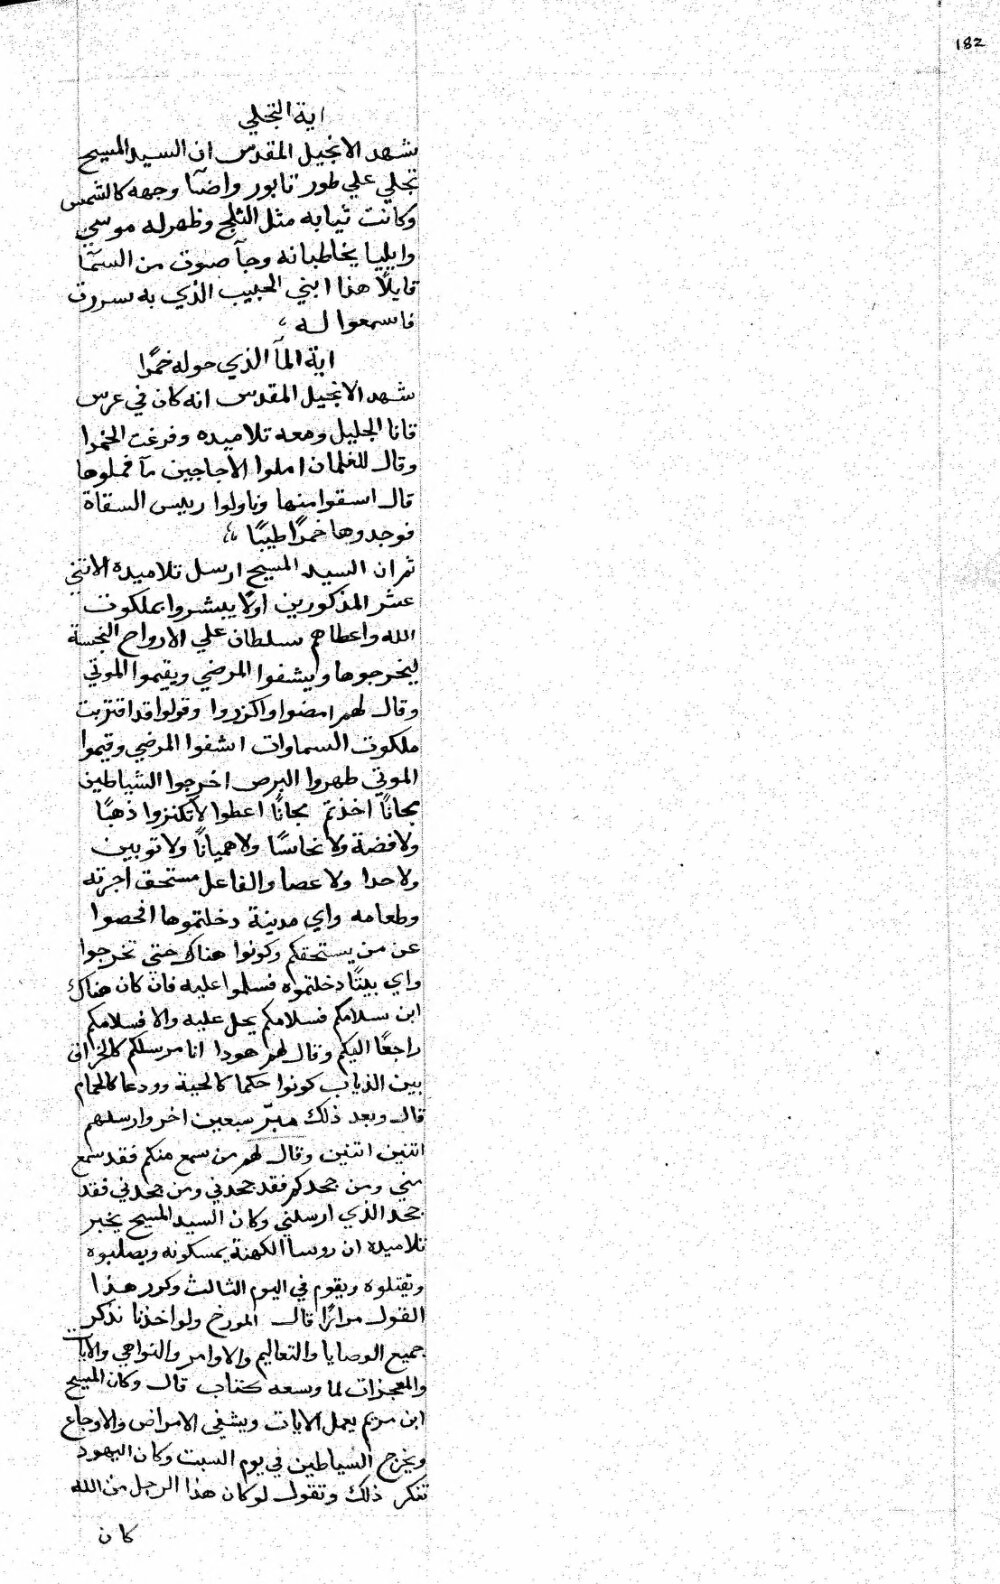 182
اية التجلي
شهد الانجيل المقدس ان السيد المسيح
تجلي علي طور تابور واضآ وجهه كالشمس
وكانت ثيابه مثل الثلج وظهر له موسي
وايليا يخاطبانه وجآ صوت من السمآ
قايلاً هذا ابني الحبيب الذي به سررت
فاسمعوا له
اية المآ الذي حوله خمرًا
شهد الانجيل المقدس انه كان في عرس
قانا الجليل ومعه تلاميده وفرغت الخمرا
وقال للغلمان املوا الاجاجين مآ فملوها
قال اسقوا منها وناولوا رييس السقاة
فوجدوها خمرًا طيبًا
ثم ان السيد المسيح ارسل تلاميده الاثني
عشر المذكورين اولاً يبشروا بملكوت
الله واعطاهم سلطان علي الارواح النجسة
ليخرجوها ويشفوا المرضي ويقيموا الموتي
وقال لهم امضوا واكرزوا وقولوا قد اقتربت
ملكوت السماوات اشفوا المرضي وقيموا
الموتي طهروا البرص اخرجوا الشياطين
مجانًا اخذتم مجانًا اعطوا لا تكنزوا ذهبًا
ولا فضة ولا نحاسًا ولا هميانًا ولا توبين
ولا حدا ولا عصا والفاعل مستحق اجرته
وطعامه واي مدينة دخلتموها افحصوا
عن من يستحقكم وكونوا هناك حتي تخرجوا
واي بيتًا دخلتموه فسلموا عليه فان كان هناك
ابن سلامكم فسلامكم يحل عليه والا فسلامكم
راجعًا اليكم وقال لهم هودا انا مرسلكم كالخراف
بين الذياب كونوا حكما كالحية وودعا كالحمام
قال وبعد ذلك ميّز سبعين اخر وارسلهم
اتنين اتنين وقال لهم من سمع منكم فقد سمع
مني ومن جحدكم فقد جحدني ومن جحدني فقد
جحد الذي ارسلني وكان السيد المسيح يخبر
تلاميده ان روسا الكهنة يمسكونه ويصلبوه
وتقتلوه ويقوم في اليوم الثالث وكرر هذا
القول مرارًا قال المورخ ولو اخذنا نذكر
جميع الوصايا والتعاليم والاوامر والنواهي والايات
والمعجزات لما وسعه كتاب قال وكان المسيح
ابن مريم يعمل الايات ويشفي الامراض والاوجاع
ويخرج الشياطين في يوم السبت وكان اليهود
تنكر ذلك وتقول لو كان هذا الرجل من الله
كان